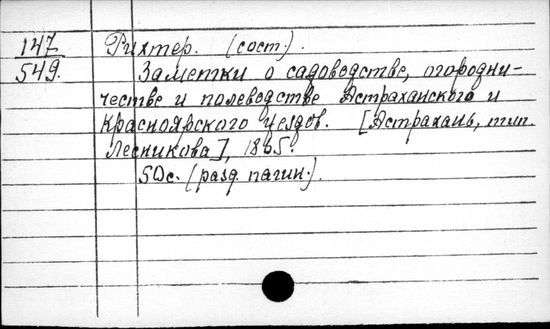 147 Рихтер. (сост.).
549. Заметки о садоводстве, огородни-
честве и полеводстве Астраханского и
Красноярского уездов. [Астрахань, тип.
Лесникова], 1865.
50с. (разд. пагин.).